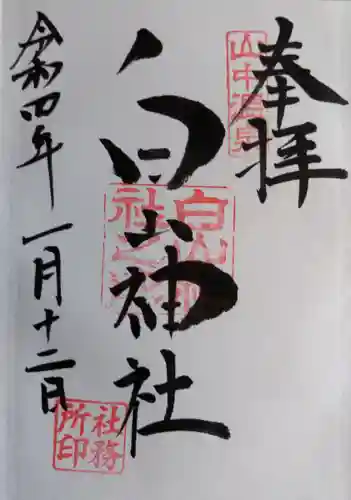 奉拝
山中温泉
白山神社
白山神社之印
令和四年一月十二日
社務所印